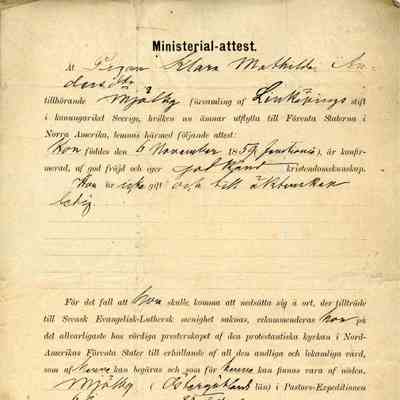 Ministerial-attest.
At Pigan Klara Mathilda An-
dersdr
tillhörande Mjölby församling af Linköpings stift
i konungariket Sverige, hvilken nu ämnar utflytta till Förenta Staterna i
Norra Amerika, lemnas härmed följande attest:
Hon föddes den 6 November 185 ), är konfir-
merad, af god fräjd och eger kristendomskunskap.
Hon är icke gift och till äktenskap
ledig.
För det fall att hon skulle komma att nedsätta sig å ort, der tillträde
till Svensk Evangelisk-Luthersk menighet saknas, rekommenderas hon på
det allvarligaste hos vördiga presterskapet af den protestantiska kyrkan i Nord-
Amerikas Förenta Stater till erhållande af all den andliga och lekamliga vård,
som af henne kan begäras och som för henne kan finnas vara af nöden.
Mjölby i Östergötlands län) i Pastors-Expeditionen